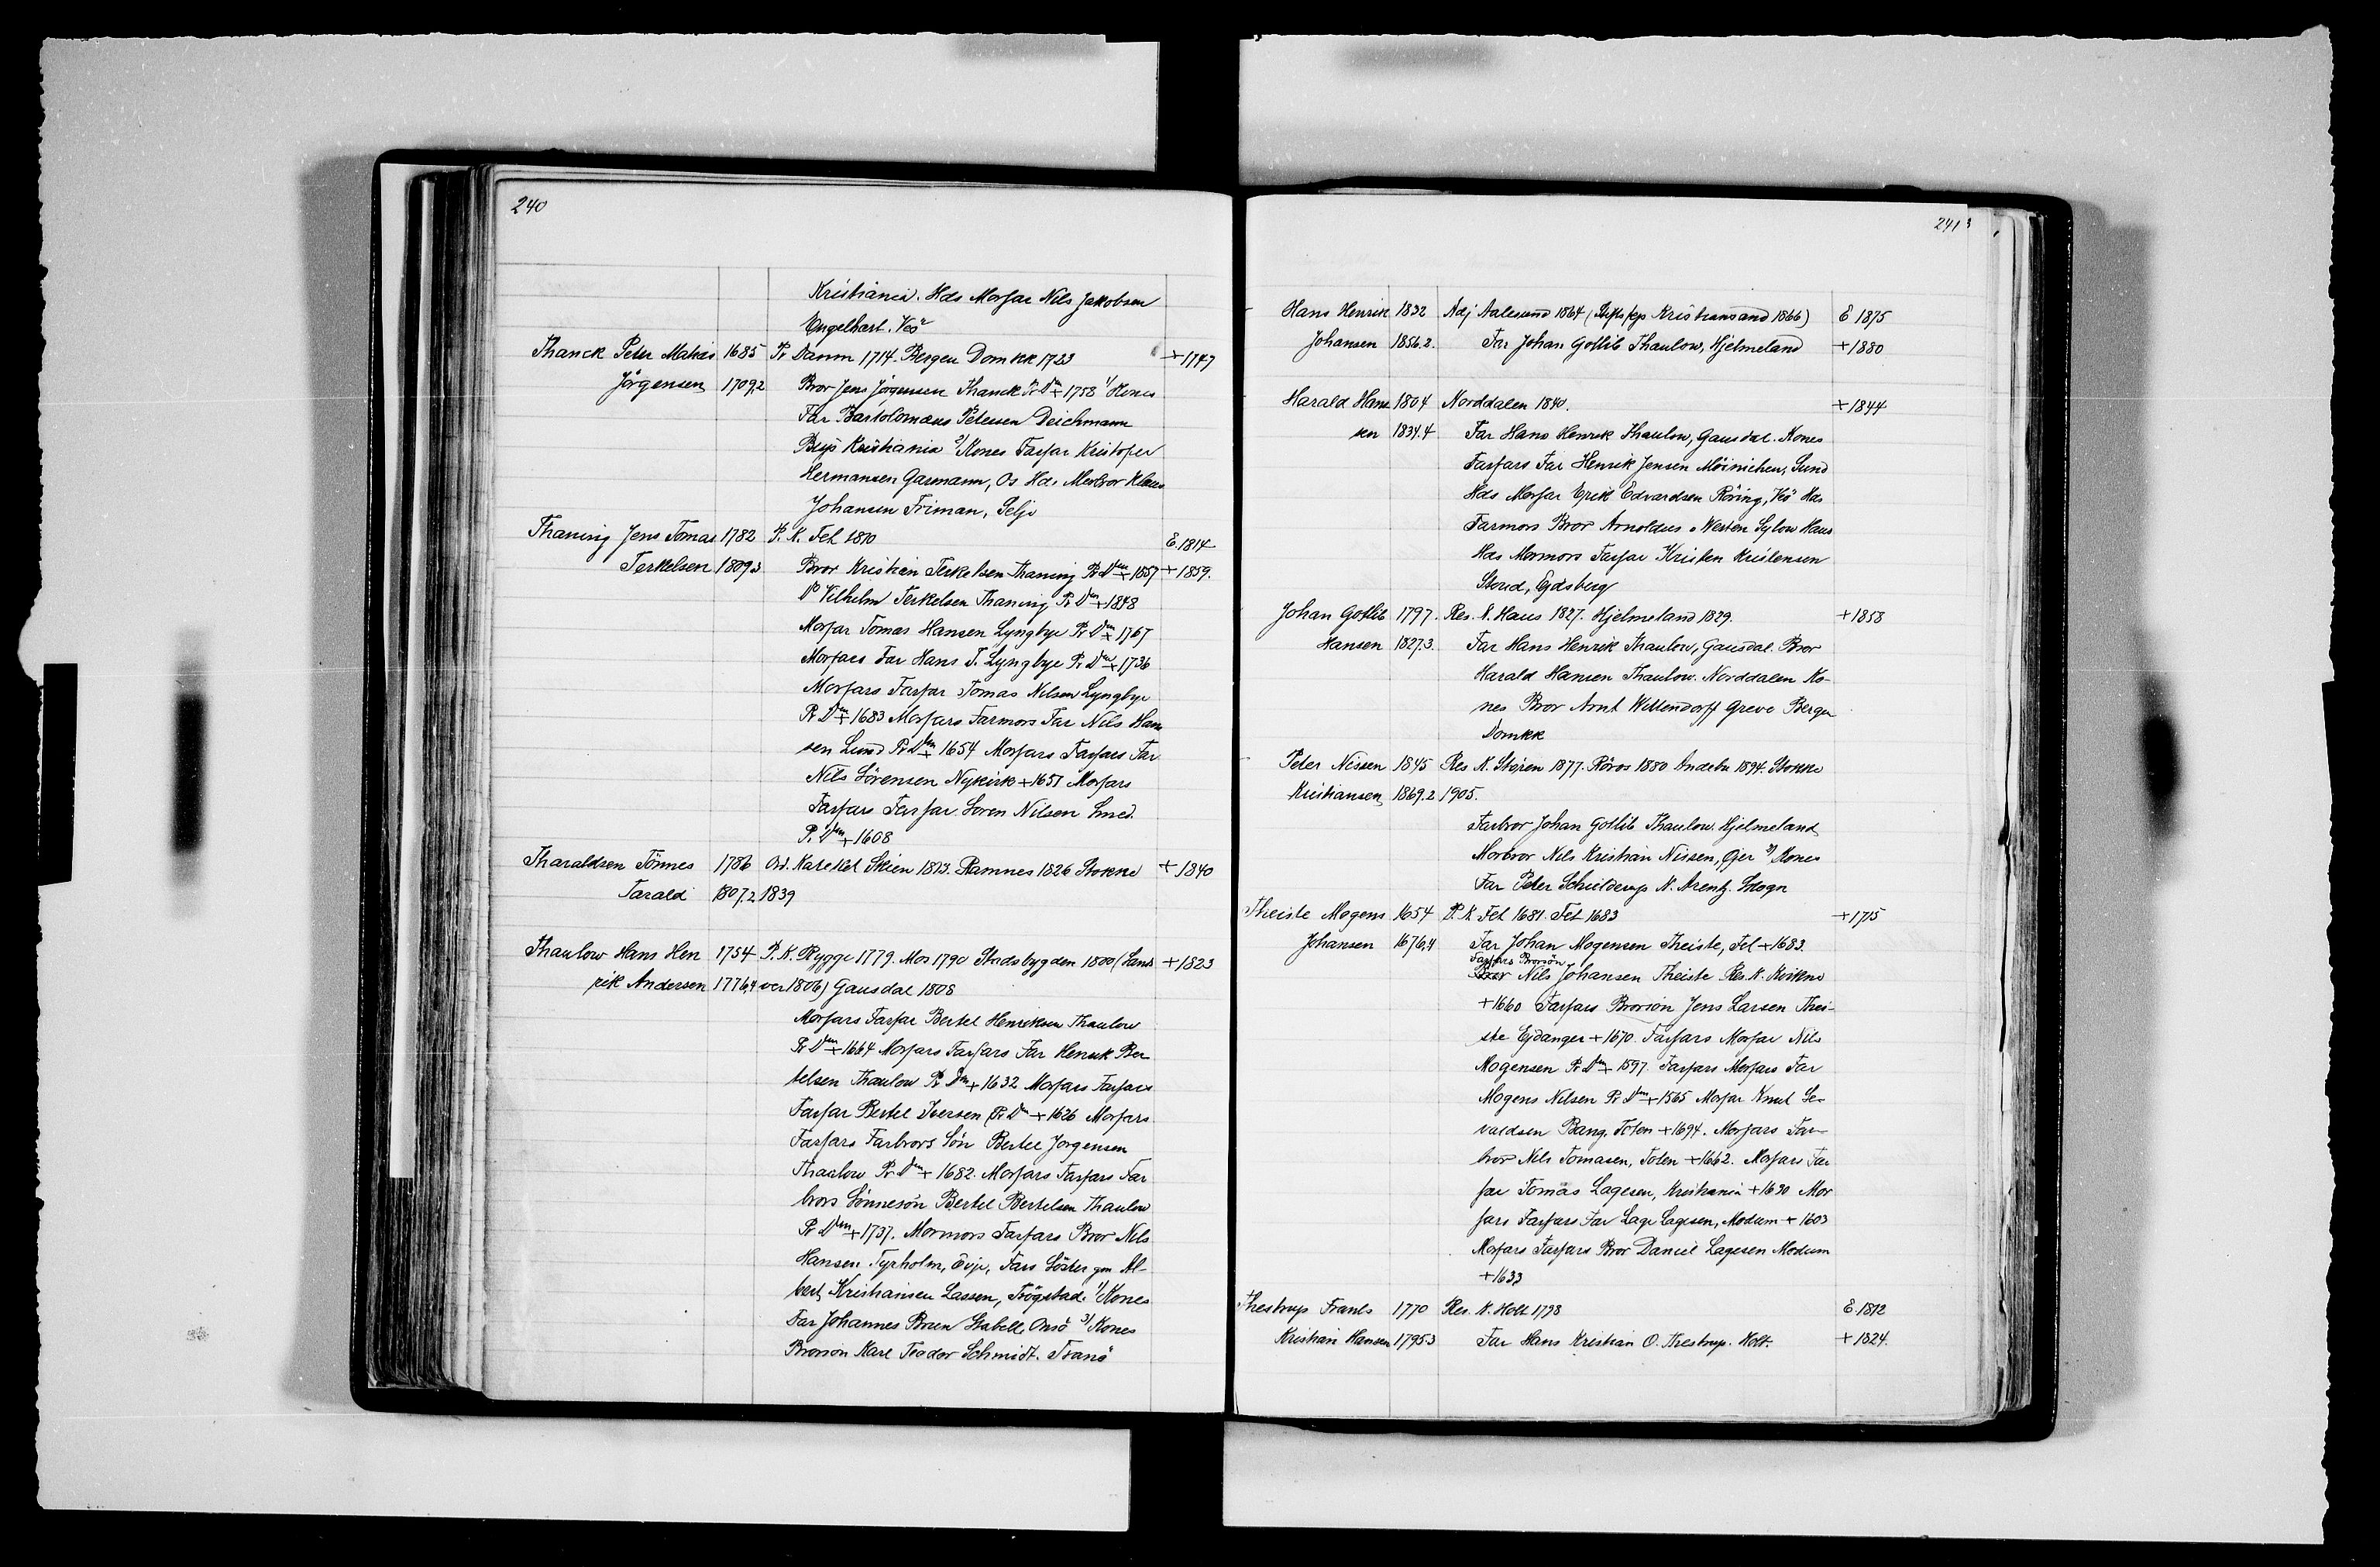 240
Kristiania. Hds Morfar Nils Jakobsen
Engelhart. Vos
Thanck Peter Matias 1685 Pr Danm 1714. Bergen Domkk 1723 +1747
Jörgensen 1709,2 Bror Jens Jörgensen Thanck Pr Dm + 1758 1/ Kones
Far Bartolomæus Petersen Deichmann
Bisp Kristiania 2/ Kones Farfar Kristofer
Hermansen Garmann, Os Hds Morbror Klaus
Johansen Friman, Selje
Thaning Jens Tomas 1782 P. K. Fet 1810 E. 1814
Terkelsen 1809.3 Bror Kristian Terkelsen Thaning Pr Dm + 1857 + 1859.
Do Vilhelm Terkelsen Thaning Pr Dm + 1848
Morfar Tomas Hansen Lyngbye Pr Dm + 1767
Morfars Far Hans T. Lyngbye Pr Dm + 1736
Morfars Farfar Tomas Nilsen Lyngbye
Pr Dm + 1683 Morfars Farmors Far Nils Han
sen Lund Pr Dm + 1654 Morfars Farfars Far
Nils Sörensen Nykirk + 1651 Morfars
Farfars Farfar Soren Nilsen Smed.
Pr Dm + 1608
Tharaldsen Tönnes 1786 Ord. Kateket Skien 1813. Ramnes 1826 Stokke + 1840
Tarald 1807.2 1839
Thaulow Hans Hen 1754 P. K. Rygge 1779. Mos 1790 Stadsbygden 1800 (Land + 1823
rik Andersen 1776,4 ver 1806) Gausdal 1808
Morfars Farfar Bertel Henriksen Thaulow
Pr Dm + 1664 Morfars Farfars Far Henrik Ber
telsen Thaulow Pr Dm + 1632 Morfars Farfars
Farfar Bertel Iversen Pr Dm + 1626 Morfars
Farfars Farbrors Sön Bertel Jorgensen
Thaulow Pr Dm + 1682. Morfars Farfars Far
brors Sönnesön Bertel Bertelsen Thaulow
Pr Dm + 1737. Mormors Farfars Bror Nils
Hansen Tyrholm, Evje, Fars Söster gm Al-
bert Kristiansen Lassen, Trögstad. 1/ Kones
Far Johannes Bruen Stabell Onsö 3/ Kones
Brorsön Karl Teodor Schmidt. Tranö
241
Hans Henrik 1832 Adj Aalesund 1864 (Stiftskp Kristiansand 1866) E 1875
Johansen 1856.2. Far Johan Gotlib Thaulow, Hjelmeland + 1880
Harald Han 1804 Norddalen 1840. + 1844
sen 1834.4 Far Hans Henrik Thaulow, Gausdal. Kones
Farfars Far Henrik Jensen Möinichen, Sund
Hds Morfar Erik Edvardsen Röring, Vos Hds
Farmors Bror Arnoldus v Westen Sylow Haus
Hds Mormors Farfar Kristen Kristensen
Stoud, Ejdsberg
Johan Gotlib 1797. Res. K. Haus 1827. Hjelmeland 1829. + 1858
Hansen 1827.3. Far Hans Henrik Thaulow, Gausdal. Bror
Harald Hansen Thaulow. Norddalen Ko-
nes Bror Arnt Wittendorff Greve Bergen
Domkk
Peter Nissen 1845 Res K. Stören 1877. Röros 1880 Andebu 1894. Stokke
Kristiansen 1869.2 1905.
Farbror Johan Gotlib Thaulow. Hjelmeland
Morbror Nils Kristian Nissen, Öjer 2/ Kones
Far Peter Schielderup N. Arentz.
Theiste Mogens 1654 P. K Fet 1681. Fet 1683 + 1715
Johansen 1676,4 Far Johan Mogensen Theiste, Fet + 1683.
Farfars Brorsön
Bror Nils Johansen Theiste Res. K. Kvikne
+ 1660 Farfars Brorsön Jens Larsen Thei-
ste Ejdanger + 1670. Farfars Morfar Nils
Mogensen Pr Dm + 1597. Farfars Morfars Far
Mogens Nilsen Pr Dm + 1565 Morfar Knut Se-
valdsen Bang, Toten + 1694. Morfars Far-
bror Nils Tomasen, Toten + 1662. Morfars Far
far Tomas Lagesen, Kristiania + 1630 Mor
fars Farfars Far Lage Lagesen, Modum + 1603
Morfars Farfars Bror Daniel Lagesen Modum
+ 1633
Thestrup Frants 1770 Res. K. Holt 1798 E. 1812
Kristian Hansen 1795.3 Far Hans Kristian O. Thestrup. Holt. + 1824.